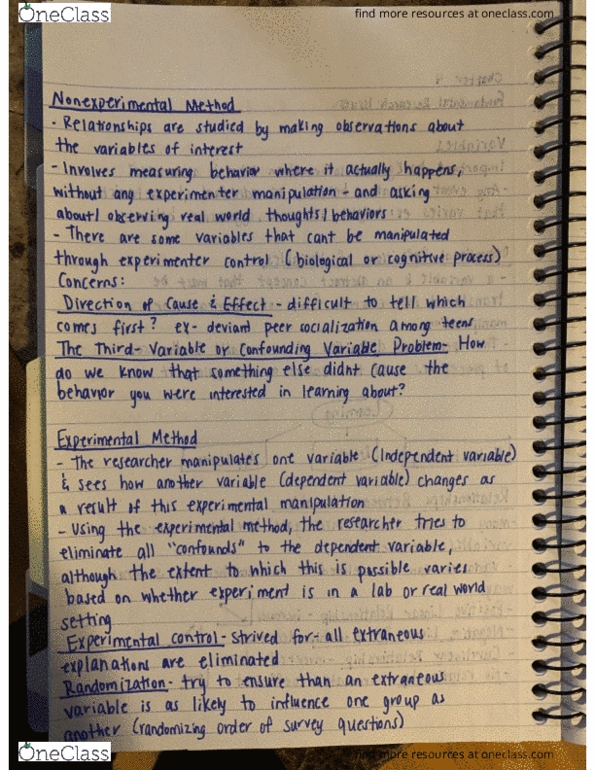 OneClass
find more resources at oneclass.com
Nonexperimental Method
- Relationships are studied by making observations about
the variables of interest
- Involves measuring behavior where it actually happens,
without any experimenter manipulation - and asking
about/observing real world thoughts/behaviors
- There are some variables that cant be manipulated
through experimenter control (biological or cognitive process)
Concerns:
Direction of Cause & Effect - difficult to tell which
comes first? ex- deviant peer socialization among teens
The Third-Variable or Confounding Variable Problem- How
do we know that something else didnt cause the
behavior you were interested in learning about?
Experimental Method
- The researcher manipulates one variable (Independent variable)
& sees how another variable (dependent variable) changes as
a result of this experimental manipulation
- Using the experimental method, the researcher tries to
eliminate all "confounds" to the dependent variable,
although the extent to which this is possible varies
based on whether experiment is in a lab or real world
setting
Experimental control- strived for- all extraneous
explanations are eliminated
Randomization- try to ensure than an extraneous
variable is as likely to influence one group as
another (randomizing order of survey questions)
OneClass
find more resources at oneclass.com